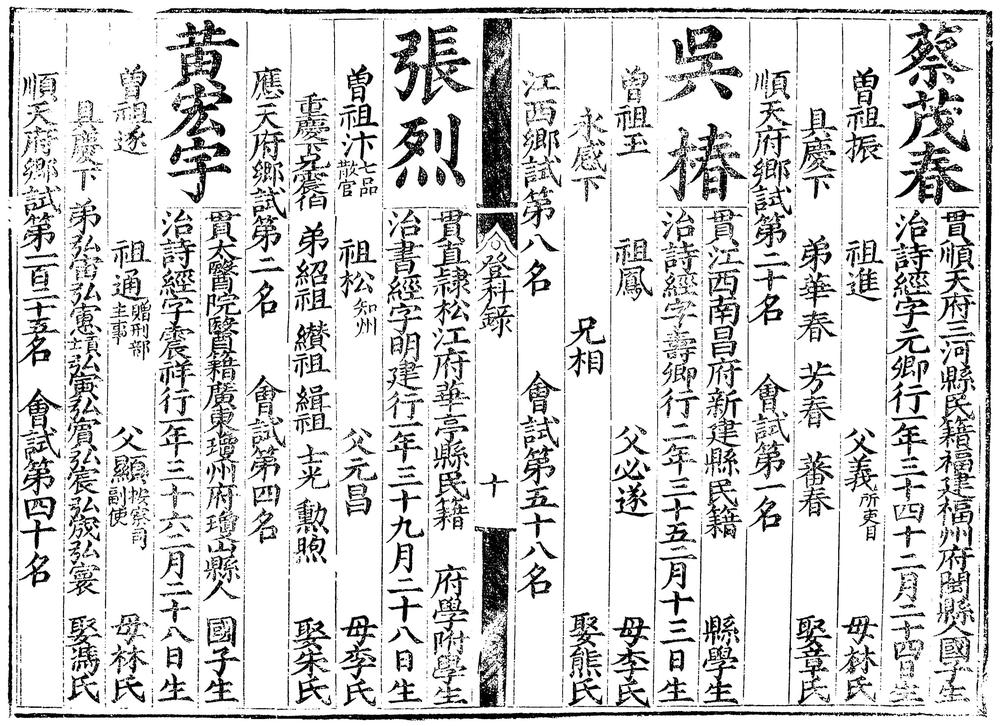 蔡茂春
貫順天府三河縣民籍福建福州府閩縣人國子生
治詩經字元卿行一年三十四十二月二十四日生
曾祖振 祖進 父義所吏目 母林氏
具慶下 弟華春 芳春 蕃春 娶章氏
順天府鄉試第二十名 會試第一名
吳椿
貫江西南昌府新建縣民籍 縣學生
治詩經字壽卿行二年三十五二月十三日生
曾祖玉 祖鳳 父必遂 母李氏
永感下 兄相 娶熊氏
江西鄉試第八名 會試第五十八名
登科錄 十
張烈
貫直隷松江府華亭縣民籍 府學附學生
治書經字明建行一年三十九月二十八日生
曾祖汴七品散官 祖松知州 父元昌 母李氏
重慶下 弟紹祖 纉祖 緝祖 士光 勲煦 娶朱氏
應天府鄉試第二名 會試第四名
黃宏宇
貫太醫院醫籍廣東瓊州府瓊山縣人 國子生
治詩經字震祥行一年三十六二月二十八日生
曾祖遂 祖通贈刑部主事 父顯按察司副使 母林氏
具慶下 弟弘宙 弘憲 弘寅 弘賓 弘宸 弘宬 弘寰 娶馮氏
順天府鄉試第一百二十五名 會試第四十名